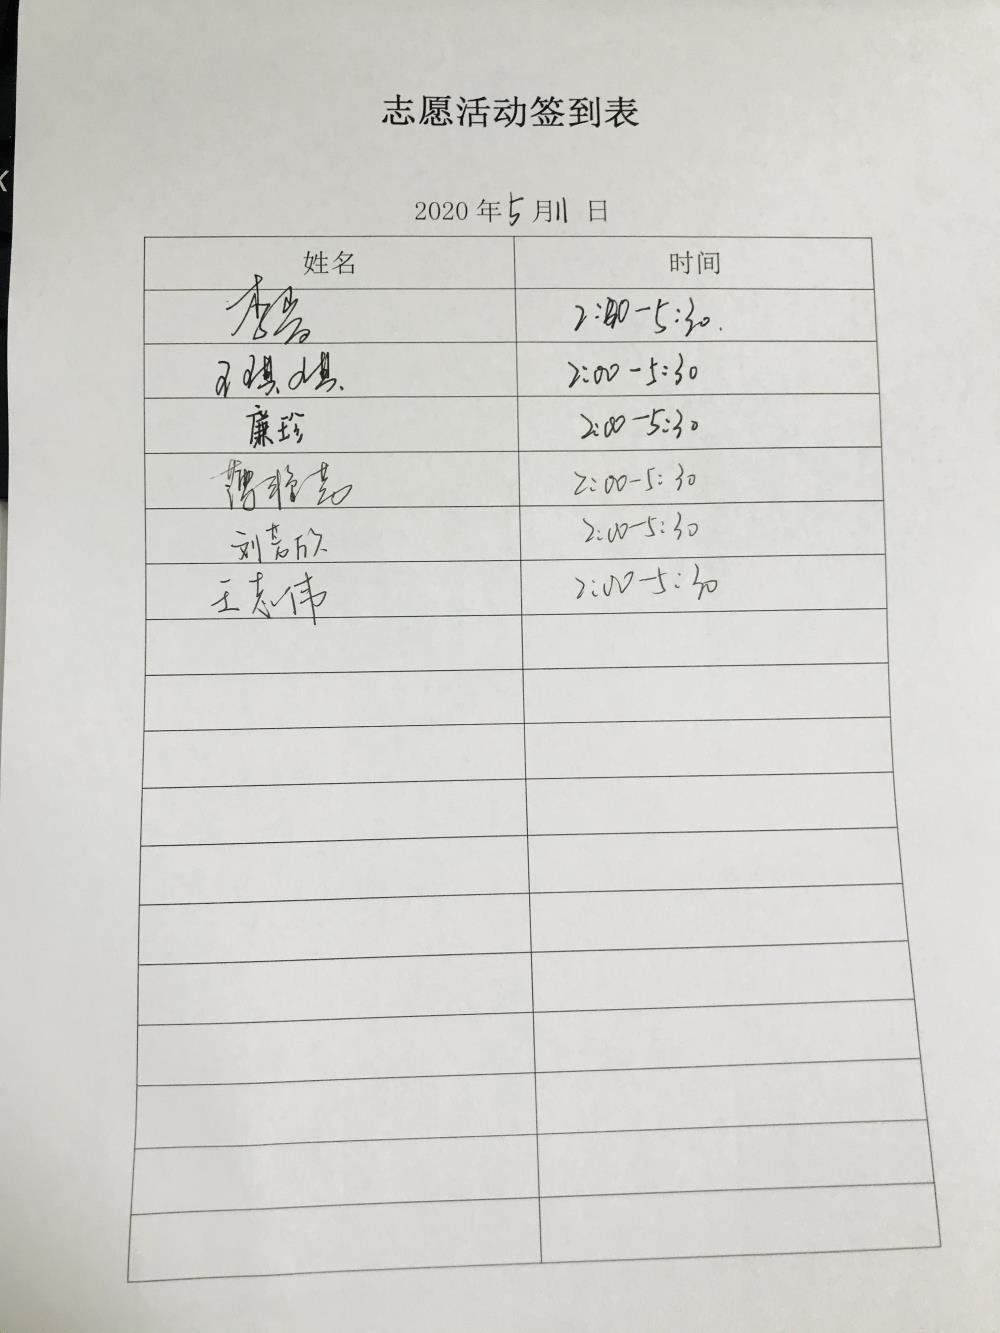 志愿活动签到表
2020 年 5 月 11 日
姓名 时间
李 2:00-5:30.
王琪琪 2:00-5:30
廉珍 2:00-5:30
2:00-5:30
刘嘉欣 2:00-5:30
王志伟 2:00-5:30
K